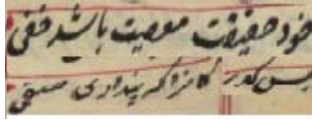 خود حقیقت معصیت باشد خفی
بس کدر کانرا که پنداری صفی